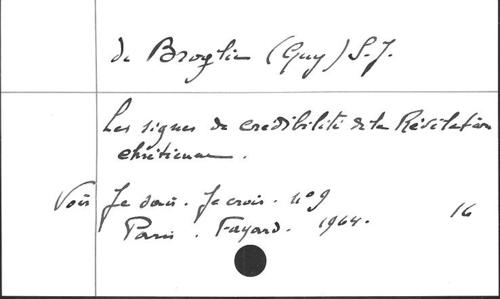 de Broglie (Guy) S.J.
Les signes de crédibilité de la Révélation
chrétienne.
Voir Je sais. Je crois. nº 9
Paris. Fayard. 1964. 16